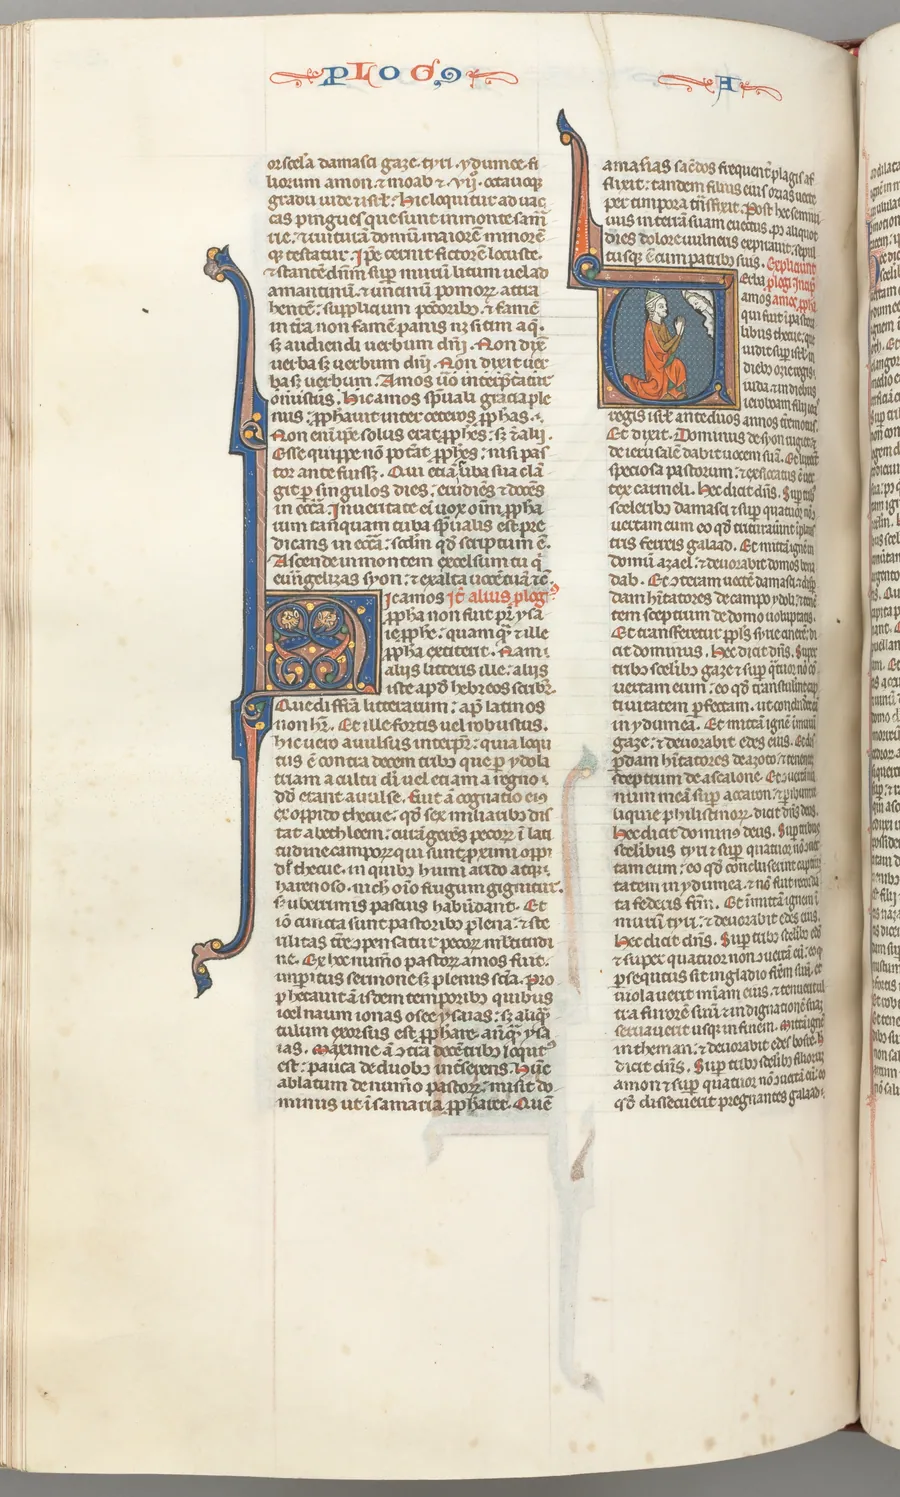 PLOGO9 A
or scelꝰa damasci gaze. tyri. ydumee. fi
liorum amon. ⁊ moab ⁊ .vij. octauoqꝫ
gradu iude ⁊ isrl̓. Hic loquitur ad uac
cas pingues que sunt in monte sam̄
rie. ⁊ ruitura domū maiorē minorē
qꝫ testatur. Ip̄e cernit fictorē locuste.
⁊ stantē dn̄m suꝑ murū litum uel ad
amantinū. ⁊ uncinū pomoꝝ attra
hentē: supplicium peccoribꝰ. ⁊ famē
in tr̄a non famē panis nꝫ sitim aq̄.
sꝫ audiendi uerbum dn̄i. Non dixͭ
uerba sꝫ uerbum dn̄i. Non dixit uer
ba sꝫ uerbum. Amos ūo interp̄tatur
onustus. Hic amos sp̄uali gratia ple
nus: ꝓphauit inter ceteros ꝓphas.
Non enī ip̄e solus erat ꝓphꝫ: sꝫ ⁊ alii.
Esse quippe non potat̄ ꝓphꝫ: nisi pas
tor ante fuissꝫ. Qui etiā liba sua clā
git ꝑ singulos dies: erudiēs ⁊ docēs
in ecc̄a. In ueritate ei uox oīm ꝓpha
rum tanquam tuba sp̄ualis est pre
dicans in ecc̄a: scdm qd̓ scriptum ē.
Ascende in montem excelsum tu q̄
euāgelizas syon: ⁊ exalta uocē tuā ⁊c̄.
Hic amos Itē alius plogꝰ
ꝓpha non fuit pr̄ ysa
ie ꝓphe: quamqꝫ ⁊ ille
ꝓpha extiterit. Nam
aliis litteris ille: aliis
iste apd̓ hebreos scribꝝ.
Que diffr̄a litteratum: ap̄ latinos
non hr̄. Et ille fortis uel robustus.
hic uero auulsus interp̄r: quia loqui
tus ē contra decem tribꝰ que ꝑ ydola
triam a cultu dī uel etiam a regno
dd̄ erant auulse. Fuit ā cognatio eiꝰ
ex oppido thecue: qd̓ sex miliaribꝰ dis
tat a bethleem: curā gerēs pecorꝝ ī lati
tudine campoꝝ qui sunt ꝓximi oppi
do thecue. in quibꝰ humi arido atqꝫ
harenoso. nich̓ oīo frugum gignitur.
sꝫ uberrimis pascuis habūdant. Et
iō cuncta sunt pastoribꝰ plena: ⁊ ste
rilitas tr̄e ꝯpensatur pecoꝝ mltitudi
ne. Ex hoc numo pastoꝝ amos fuit.
imꝑitus sermone sꝫ plenus scīa. Pro
phetauit ā isdem temporibꝰ quibus
ioel naum ionas osee ysaias: sꝫ aliq̄
tulum exorsus est ꝓphare. an̄qꝫ ysa
ias. Maxime ā ꝯtra decē tribꝰ loquit̄
est: pauca de duobꝰ intserens. Hūc
ablatum de numo pastoꝝ: misit do
minus ut ī samaria ꝓpharet. Quē
amasias sac̓dos frequent̓ plagis af
flixit: tandem filius eius ozias uecte
per timpora trāsfixit. Post hec semiui
uus in terrā suam euectus. pꝰ aliquot
dies dolore uulneris expirauit: sepul
tusqꝫ ē cum patribꝰ suis. Expliciunt
plogi. Incip̄ amos ꝓpha
Uerba
amos
qui fuit ī pastora
libus thecue: que
uidit sup̓ isrl̓ in
diebꝰ ozie regis
iuda ⁊ in diebus
ieroboam filii ioas
regis isrl̓ ante duos annos t̓remotus.
Et dixit. Dominus de syon rugiet: ⁊
de ierusalē dabit uocem suā. Et luxerūt
speciosa pastorum: ⁊ exsiccatus ē uer
tex carmeli. Hec dicit dn̄s. Suꝑ tribꝰ
sceleribꝰ damasci ⁊ suꝑ quatuor nō
uertam eum eo qd̓ trituraūint ī plaus
tris ferreis galaad. Et mittā ignē in
domū azael: ⁊ deuorabit domos bena
dab. Et ꝯteram uectē damasci: ⁊ disꝑ
dam hītatores de campo ydoli: ⁊ tenen
tem sceptrum de domo uoluptatis.
Et transferetur ppl̓s syrie cirenē: di
cit dominus. Hec dicit dn̄s. Super
tribꝰ scelibꝰ gaze ⁊ suꝑ q̄tuor nō cō
uertam eum: eo qd̓ transtulint cap
tiuitatem ꝑfectam. ut concluderēt eā
in ydumea. Et mittā ignē ī murū
gaze: ⁊ deuorabit edes eius. Et dis
ꝑdam hītatores de azoto: ⁊ tenentē
sceptrum de ascalone. Et ꝯuertā ma
num meā suꝑ accaron: ⁊ ꝑibunt re
liquie philistinoꝝ. dicit dn̄s deus.
Hec dicit dominꝰ deus. Suꝑ tribus
scelibus tyri ⁊ suꝑ quatuor nō ꝯuer
tam eum: eo qd̓ concluserint captiui
tatem in ydumea. ⁊ nō sunt recordati
ta federis fr̄m. Et īmittā ignem ī
murū tyri: ⁊ deuorabit edes eius.
Hec dicit dn̄s. Suꝑ tribꝰ scelibꝰ edō
⁊ super quatuor non ꝯuertā eū: eo q̄
ꝑsequtus sit in gladio frēm suū. ⁊
uiolauerit mīam eius. ⁊ tenuerit ul
tra furorē suū ⁊ indignationē suam
seruauerit usqꝫ in finem. Mittā ignē
in theman: ⁊ deuorabit edes bosre. H̓
dicit dn̄s. Suꝑ tribꝰ scelibꝰ filiorū
amon ⁊ suꝑ quatuor nō ꝯuertā eū: eo
qd̓ dissecuerit pregnantes galaad